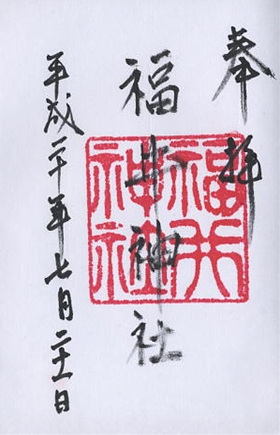 奉拝
福井神社
福井神社
平成二十年七月二十一日